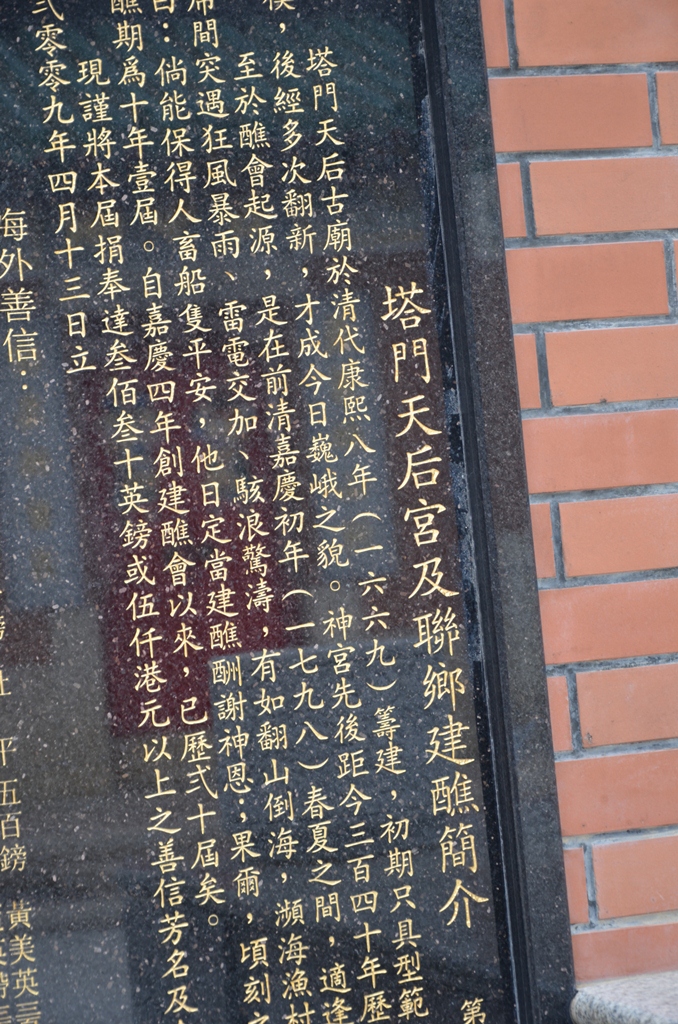 塔門天后宮及聯鄉建醮簡介
第
塔門天后古廟於清代康熙八年(一六六九)籌建,初期只具型範
,後經多次翻新,才成今日巍峨之貌。神宮先後距今三百四十年歷
至於醮會起源,是在前清嘉慶初年(一七九八)春夏之間,適逢
席間突遇狂風暴雨、雷電交加、駭浪驚濤,有如翻山倒海,瀕海漁村
曰:倘能保得人畜船隻平安,他日定當建醮酬謝神恩;果爾,頃刻之
醮期爲十年壹屆。自嘉慶四年創建醮會以來,已歷弍十屆矣。
現謹將本屆捐奉達叁佰叁十英鎊或伍仟港元以上之善信芳名及
弍零零九年四月十三日立
海外善信:
黃美英三
平 五百鎊